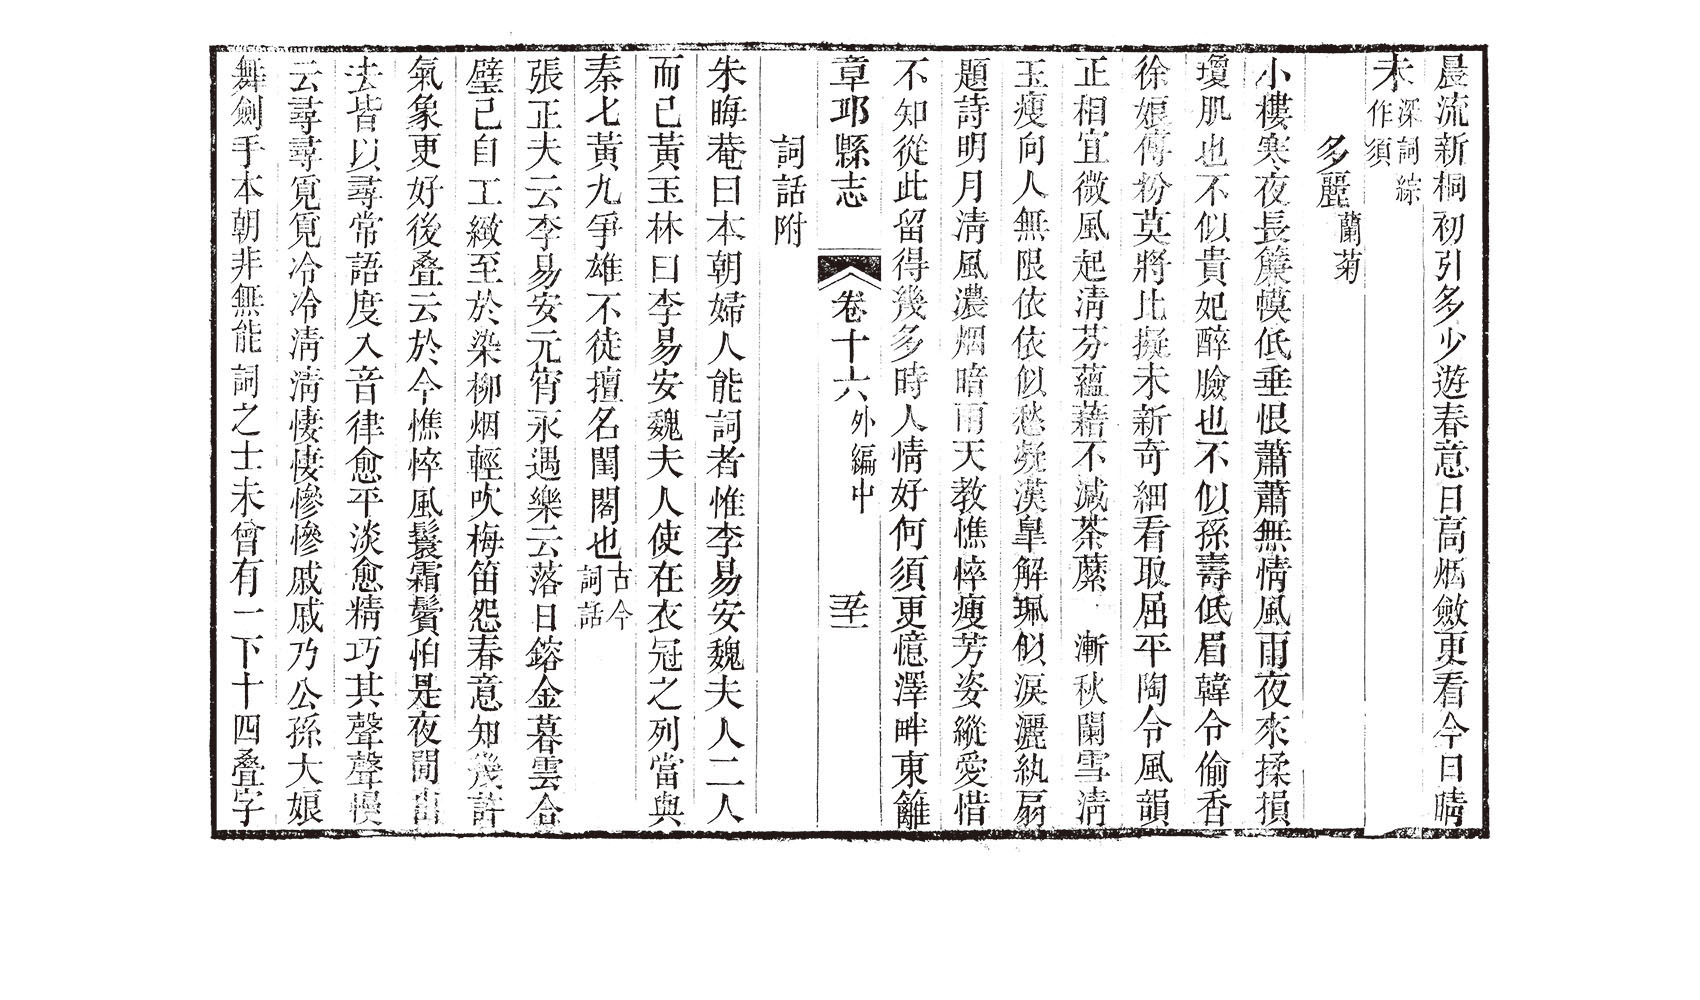 晨流新桐初引多少遊春意日高烟斂更看今日晴
未深詞綜作須
多麗蘭菊
小樓寒夜長簾幙低垂恨蕭蕭無情風雨夜來揉損
瓊肌也不似貴妃醉臉也不似孫壽低眉韓令偷香
徐娘傅粉莫將比擬未新奇細看取屈平陶令風韻
正相宜微風起淸芬蘊藉不減荼蘼 漸秋闌雪淸
玉瘦向人無限依依似愁凝漢皐解珮似淚灑紈扇
題詩明月淸風濃烟暗雨天敎憔悴瘦芳姿縱愛惜
不知從此留得幾多時人情好何須更憶澤畔東籬
章邱縣志 卷十六外編中 五十一
詞話附
朱晦菴曰本朝婦人能詞者惟李易安魏夫人二人
而已黃玉林曰李易安魏夫人使在衣冠之列當與
秦七黃九爭雄不徒擅名閨閣也古今詞話
張正夫云李易安元宵永遇樂云落日鎔金暮雲合
璧已自工緻至於染柳烟輕吹梅笛怨春意知幾許
氣象更好後疊云於今憔悴風鬟霜鬢怕是夜間出
去皆以尋常語度入音律愈平淡愈精巧其聲聲慢
云尋尋覓覓冷冷淸淸悽悽慘慘戚戚乃公孫大娘
舞劍手本朝非無能詞之士未曾有一下十四疊字